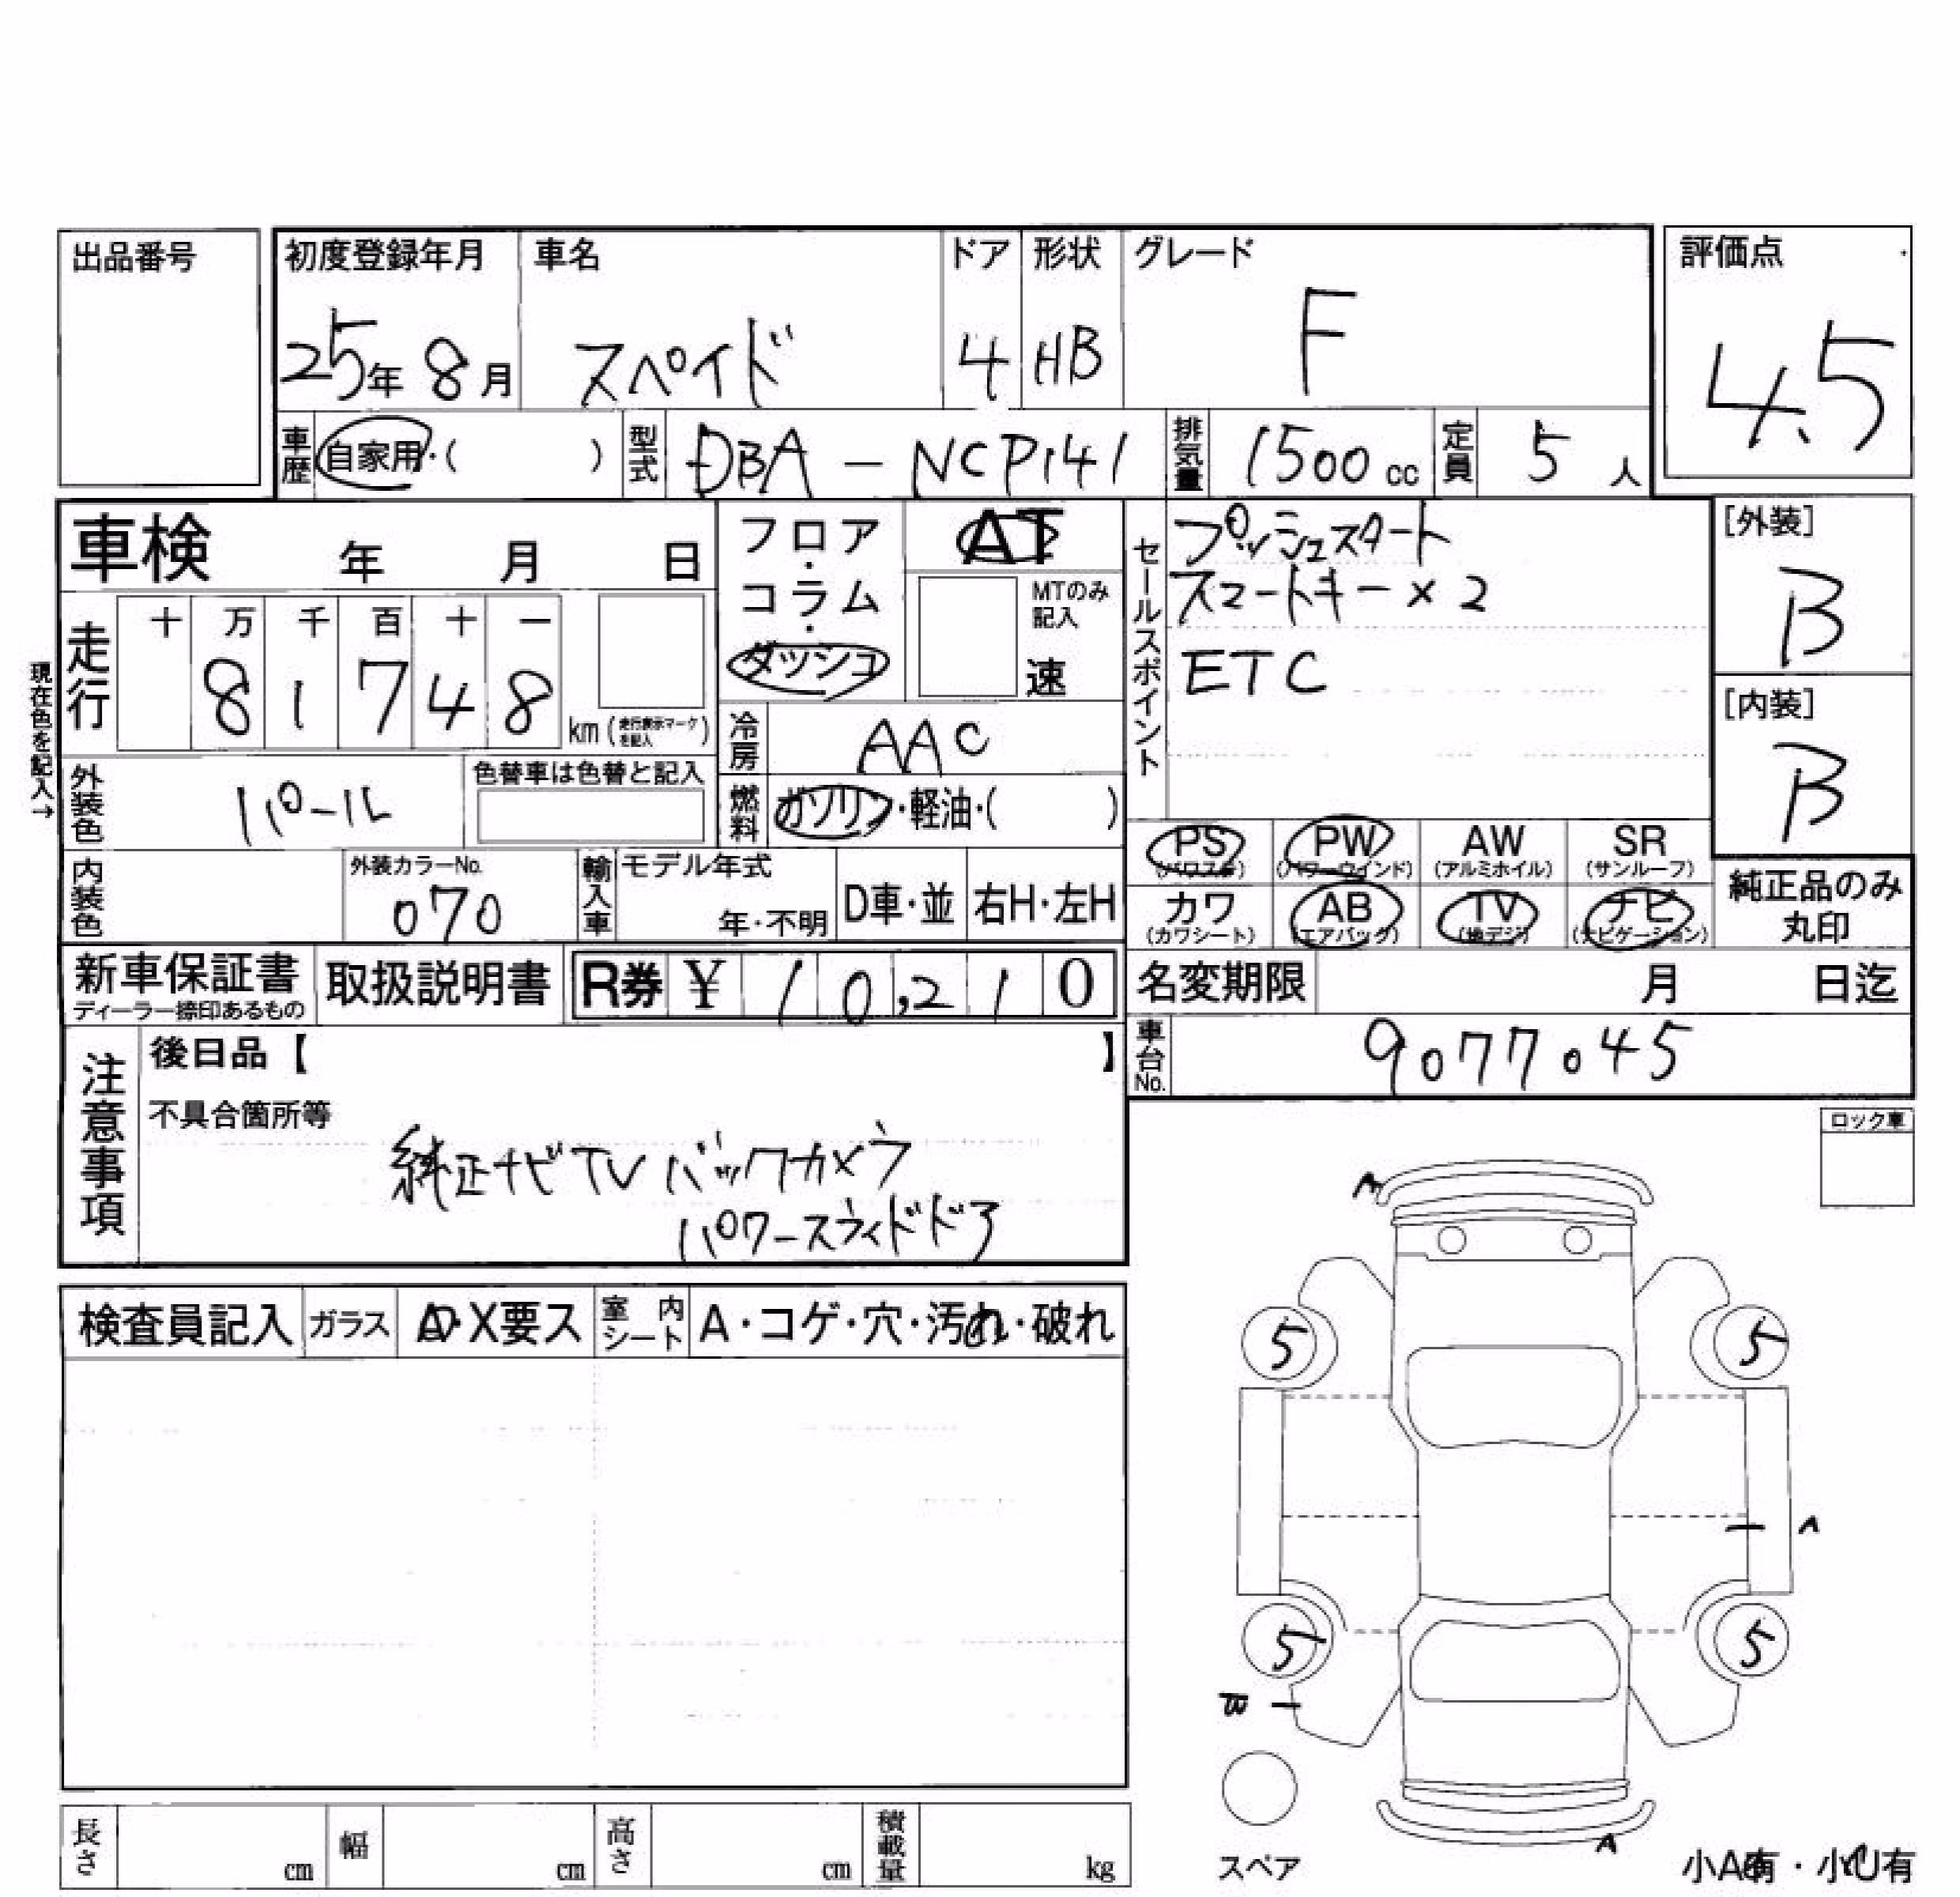 出品番号
初度登録年月 車名 ドア 形状 グレード 評価点
25年 8月 スペイド 4 HB F 4.5
車歴 自家用・( ) 型式 DBA - NCP141 排気量 1500 cc 定員 5 人
車検 年 月 日
フロア・コラム・ダッシュ
AT
MTのみ記入
速
セールスポイント
プッシュスタート
スマートキー×2
ETC
[外装]
B
[内装]
B
現在色を記入→
走行 十 万 千 百 十 一
8 1 7 4 8 km (走行表示マークを記入)
冷房 AAC
外装色 パール 色替車は色替と記入
燃料 ガソリン・軽油・( )
内装色 外装カラーNo. 070
輸入車 モデル年式 年・不明 D車・並 右H・左H
PS (パワステ) PW (パワーウインド) AW (アルミホイル) SR (サンルーフ)
カワ (カワシート) AB (エアバック) TV (地デジ) ナビ (ナビゲーション)
純正品のみ丸印
新車保証書 ディーラー捺印あるもの 取扱説明書 R券 ¥ 10,210
名変期限 月 日迄
車台No. 9077045
注意事項
後日品【 】
不具合箇所等
純正ナビTV バックカメラ
パワースライドドア
ロック車
A
検査員記入 ガラス A・X要ス 室内シート A・コゲ・穴・汚れ・破れ
5 5
A
5 5
B
A
スペア
小A有・小U有
長さ cm 幅 cm 高さ cm 積載量 kg